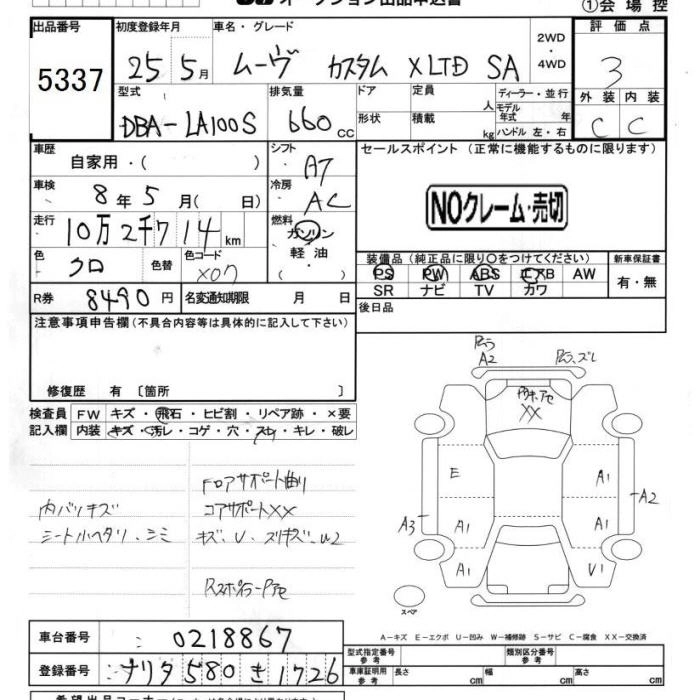 オークション出品申込書
①会場控
出品番号 初度登録年月 車名・グレード 2WD・4WD 評価点
5337 25年5月 ムーヴ カスタム XLTD SA 3
型式 排気量 ドア 定員 人 ディーラー・並行 外装 内装
DBA-LA100S 660cc 形状 積載 kg モデル年式 年 ハンドル 左・右 C C
車歴 自家用・( ) シフト AT セールスポイント (正常に機能するものに限ります)
車検 8年5月( 日) 冷房 AC
NOクレーム・売切
走行 10万2千714km 燃料 ガソリン
軽油・( )
色 クロ 色替 色コード X07 装備品(純正品に限り○をつけてください) 新車保証書
PS PW ABS エアB AW 有・無
SR ナビ TV カワ
R券 8490円 名変通知期限 月 日 後日品
注意事項申告欄(不具合内容等は具体的に記入して下さい)
修復歴 有〔箇所 〕
検査員記入欄 FW キズ・飛石・ヒビ割・リペア跡・×要
内装 キズ・汚レ・コゲ・穴・スレ・キレ・破レ
A2
XX
E A1
A2
A3 A1 A1
A1 U1
スペア
フロアサポート曲り
内バリキズ コアサポートXX
シートハタリ、シミ キズ、U、スリキズ、U2
A-キズ E-エクボ U-凹み W-補修跡 S-サビ C-腐食 XX-交換済
車台番号 0218867
型式指定番号 参考 類別区分番号 参考
登録番号 ナリタ580き1726
車庫証明用 参考 長さ cm 幅 cm 高さ cm